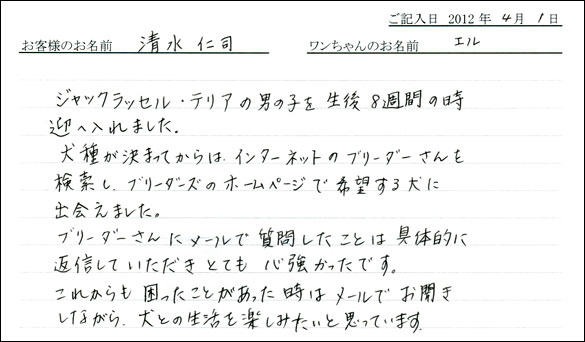 ご記入日 2012年 4月 1日
お客様のお名前 清水 仁司 ワンちゃんのお名前 エル
ジャックラッセル・テリアの男の子を 生後 8週間の時
迎へ入れました.
犬種が決まってからは、インターネットのブリーダーさんを
検索し、ブリーダーズのホームページで希望する犬に
出会えました。
ブリーダーさんにメールで質問したことは具体的に
返信していただきとても 心強かったです。
これからも困ったことがあった時はメールでお聞き
しながら、犬との生活を楽しみたいと思っています.